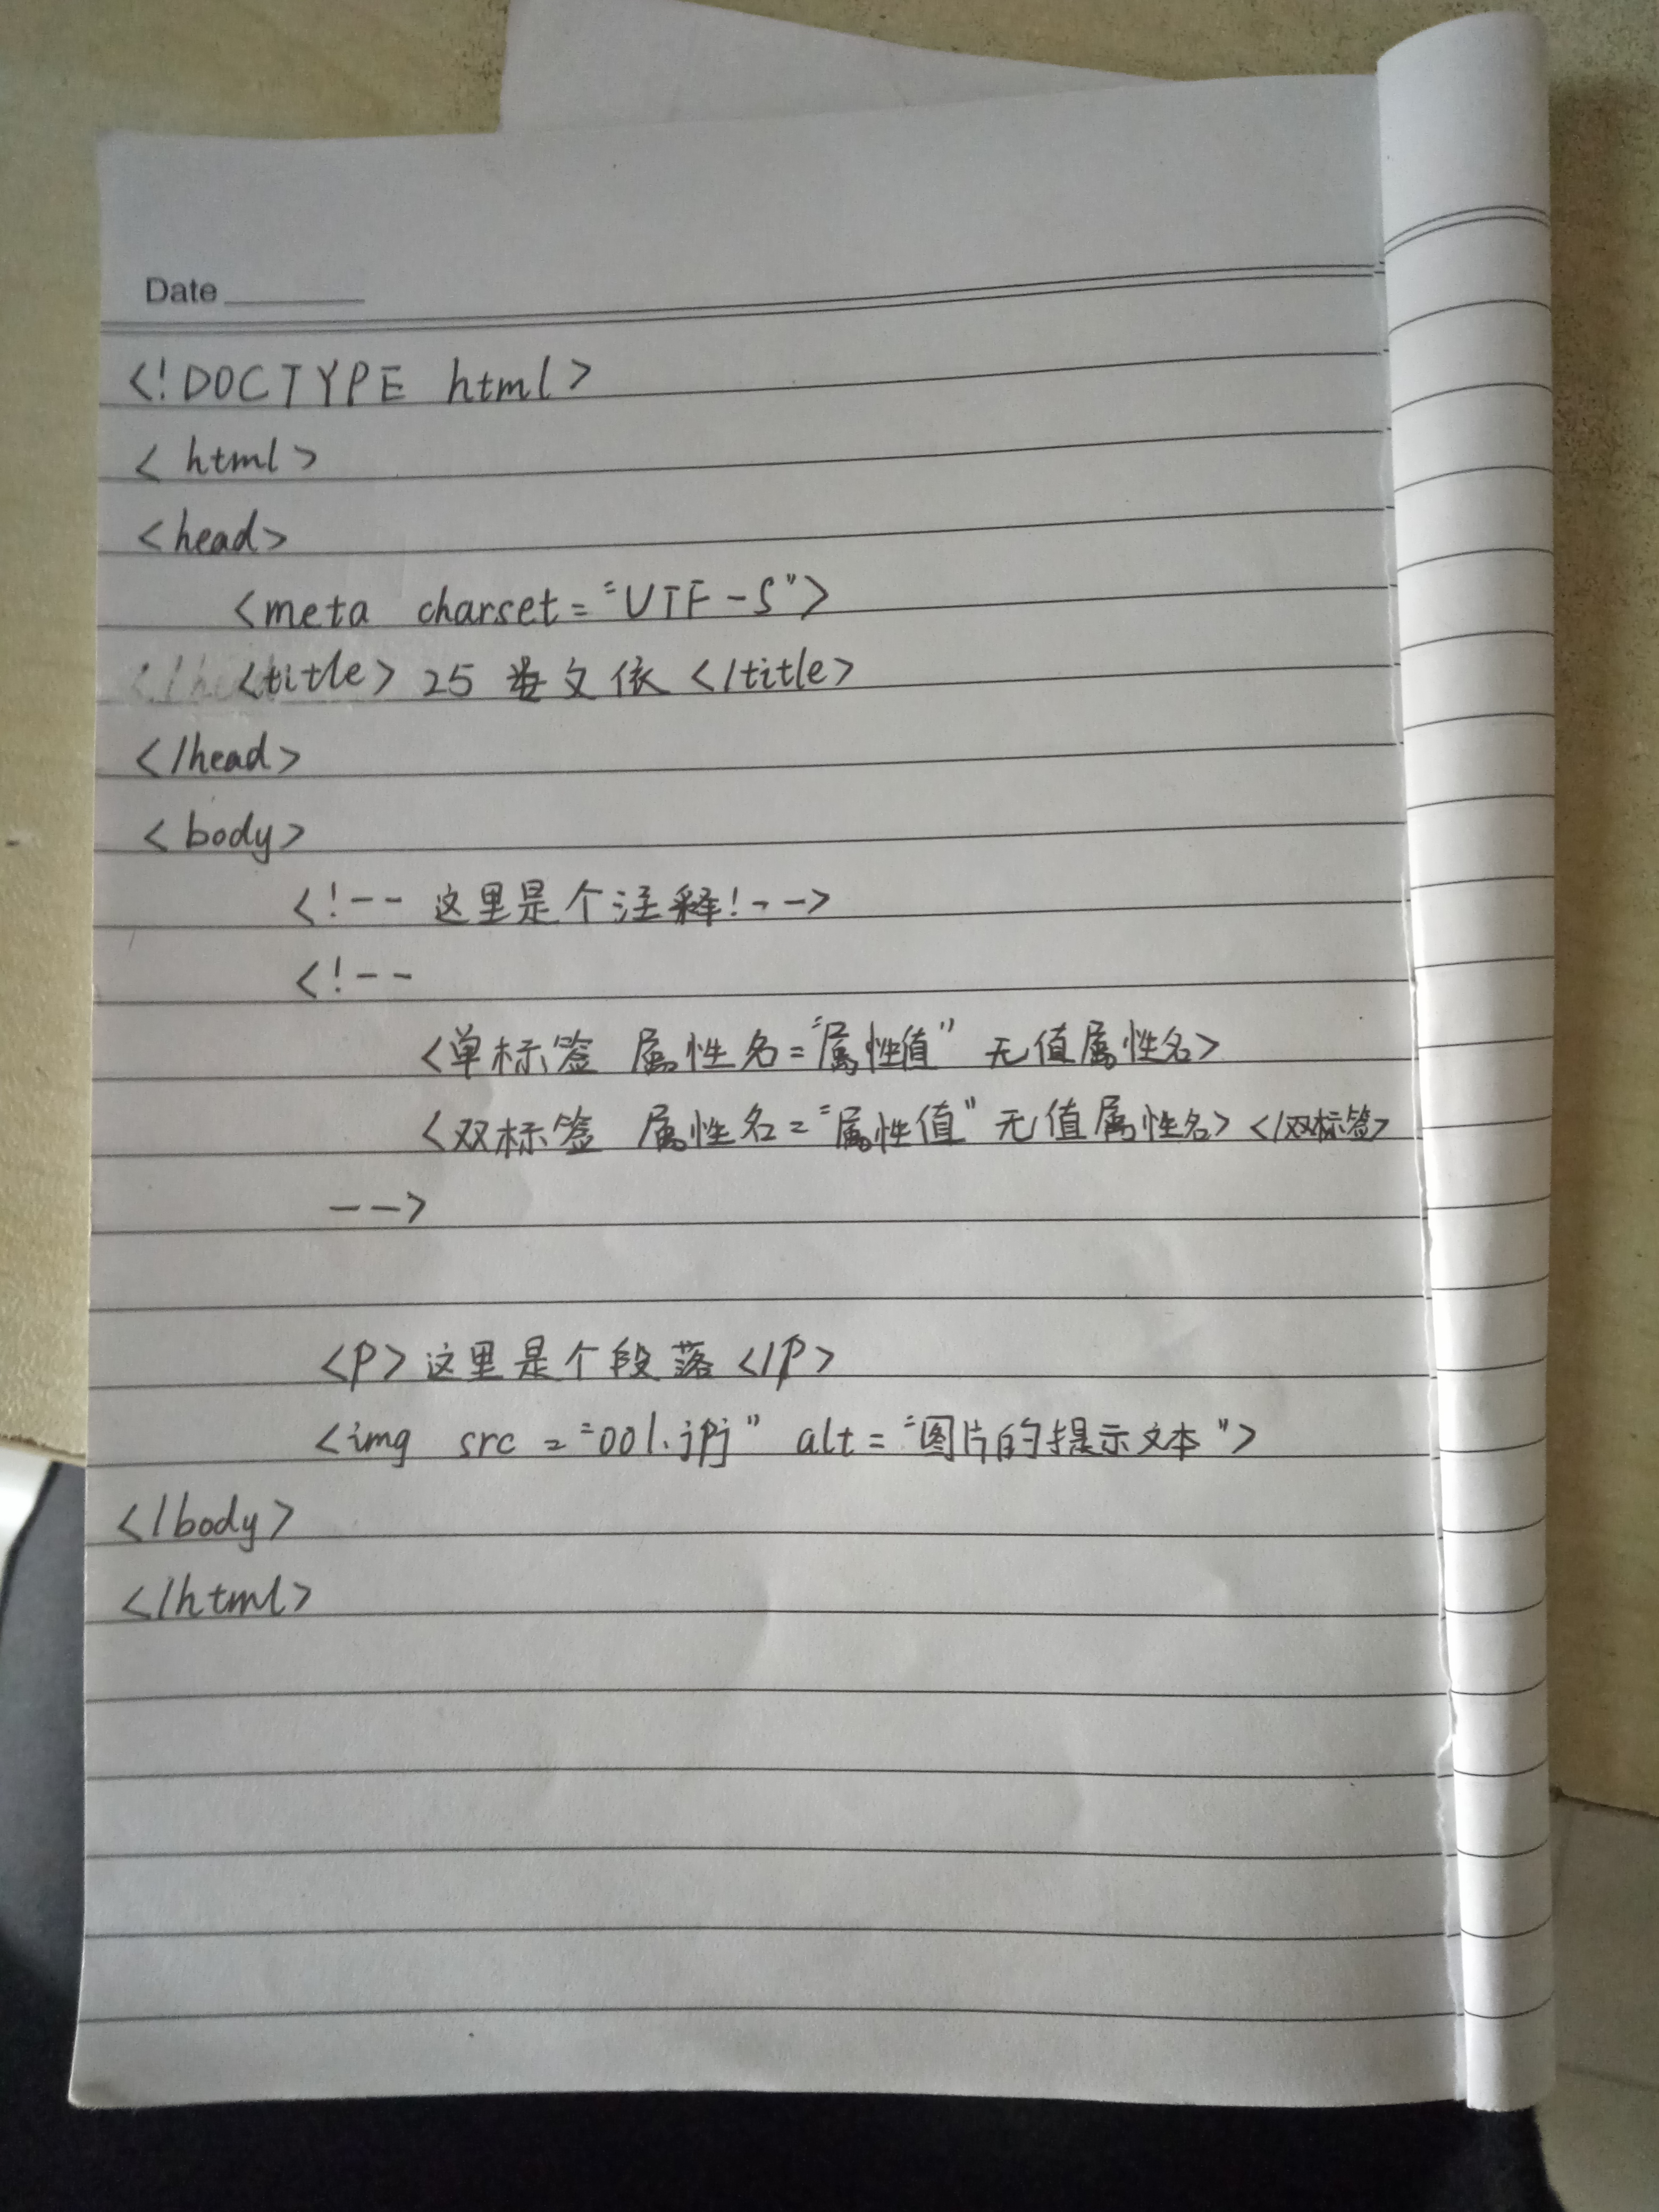 Date
<!DOCTYPE html>
<html>
<head>
<meta charset="UTF-S">
<title> 25 文依 </title>
</head>
<body>
<!-- 这里是个注释! -->
<!--
<单标签 属性名="属性值" 无值属性名>
<双标签 属性名="属性值" 无值属性名> </双标签>
-->
<p> 这里是个段落 </p>
<img src="001.jpj" alt="图片的提示文本">
</body>
</html>